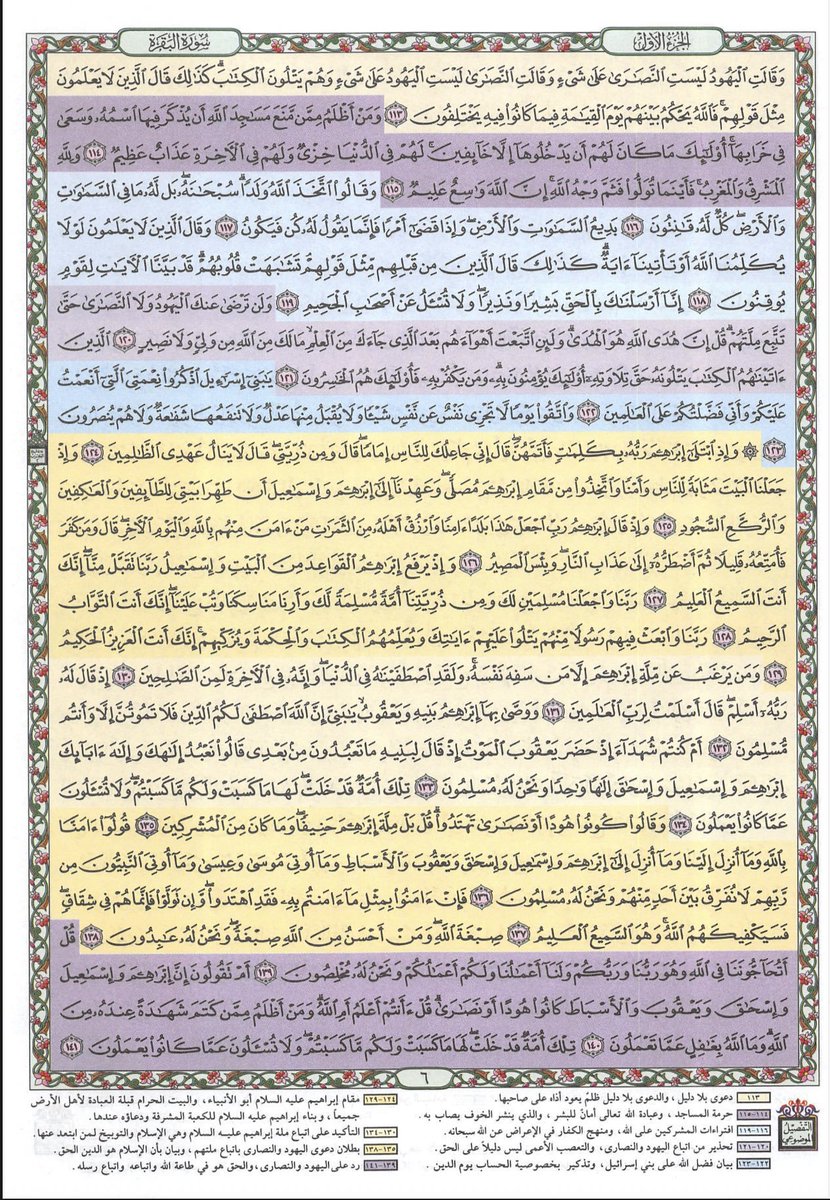 الجزء الأول
سورة البقرة
وَقَالَتِ ٱلۡيَهُودُ لَيۡسَتِ ٱلنَّصَٰرَىٰ عَلَىٰ شَيۡءٖ وَقَالَتِ ٱلنَّصَٰرَىٰ لَيۡسَتِ ٱلۡيَهُودُ عَلَىٰ شَيۡءٖ وَهُمۡ يَتۡلُونَ ٱلۡكِتَٰبَۗ كَذَٰلِكَ قَالَ ٱلَّذِينَ لَا يَعۡلَمُونَ
مِثۡلَ قَوۡلِهِمۡۚ فَٱللَّهُ يَحۡكُمُ بَيۡنَهُمۡ يَوۡمَ ٱلۡقِيَٰمَةِ فِيمَا كَانُواْ فِيهِ يَخۡتَلِفُونَ ١١٣ وَمَنۡ أَظۡلَمُ مِمَّن مَّنَعَ مَسَٰجِدَ ٱللَّهِ أَن يُذۡكَرَ فِيهَا ٱسۡمُهُۥ وَسَعَىٰ
فِي خَرَابِهَآۚ أُوْلَٰٓئِكَ مَا كَانَ لَهُمۡ أَن يَدۡخُلُوهَآ إِلَّا خَآئِفِينَۚ لَهُمۡ فِي ٱلدُّنۡيَا خِزۡيٞ وَلَهُمۡ فِي ٱلۡأٓخِرَةِ عَذَابٌ عَظِيمٞ ١١٤ وَلِلَّهِ
ٱلۡمَشۡرِقُ وَٱلۡمَغۡرِبُۚ فَأَيۡنَمَا تُوَلُّواْ فَثَمَّ وَجۡهُ ٱللَّهِۚ إِنَّ ٱللَّهَ وَٰسِعٌ عَلِيمٞ ١١٥ وَقَالُواْ ٱتَّخَذَ ٱللَّهُ وَلَدٗاۗ سُبۡحَٰنَهُۥۖ بَل لَّهُۥ مَا فِي ٱلسَّمَٰوَٰتِ
وَٱلۡأَرۡضِۖ كُلّٞ لَّهُۥ قَٰنِتُونَ ١١٦ بَدِيعُ ٱلسَّمَٰوَٰتِ وَٱلۡأَرۡضِۖ وَإِذَا قَضَىٰٓ أَمۡرٗا فَإِنَّمَا يَقُولُ لَهُۥ كُن فَيَكُونُ ١١٧ وَقَالَ ٱلَّذِينَ لَا يَعۡلَمُونَ لَوۡلَا
يُكَلِّمُنَا ٱللَّهُ أَوۡ تَأۡتِينَآ ءَايَةٞۗ كَذَٰلِكَ قَالَ ٱلَّذِينَ مِن قَبۡلِهِم مِّثۡلَ قَوۡلِهِمۡۘ تَشَٰبَهَتۡ قُلُوبُهُمۡۗ قَدۡ بَيَّنَّا ٱلۡأٓيَٰتِ لِقَوۡمٖ
يُوقِنُونَ ١١٨ إِنَّآ أَرۡسَلۡنَٰكَ بِٱلۡحَقِّ بَشِيرٗا وَنَذِيرٗاۖ وَلَا تُسۡـَٔلُ عَنۡ أَصۡحَٰبِ ٱلۡجَحِيمِ ١١٩ وَلَن تَرۡضَىٰ عَنكَ ٱلۡيَهُودُ وَلَا ٱلنَّصَٰرَىٰ حَتَّىٰ
تَتَّبِعَ مِلَّتَهُمۡۗ قُلۡ إِنَّ هُدَى ٱللَّهِ هُوَ ٱلۡهُدَىٰۗ وَلَئِنِ ٱتَّبَعۡتَ أَهۡوَآءَهُم بَعۡدَ ٱلَّذِي جَآءَكَ مِنَ ٱلۡعِلۡمِ مَا لَكَ مِنَ ٱللَّهِ مِن وَلِيّٖ وَلَا نَصِيرٍ ١٢٠ ٱلَّذِينَ
ءَاتَيۡنَٰهُمُ ٱلۡكِتَٰبَ يَتۡلُونَهُۥ حَقَّ تِلَاوَتِهِۦٓ أُوْلَٰٓئِكَ يُؤۡمِنُونَ بِهِۦۗ وَمَن يَكۡفُرۡ بِهِۦ فَأُوْلَٰٓئِكَ هُمُ ٱلۡخَٰسِرُونَ ١٢١ يَٰبَنِيٓ إِسۡرَٰٓءِيلَ ٱذۡكُرُواْ نِعۡمَتِيَ ٱلَّتِيٓ أَنۡعَمۡتُ
عَلَيۡكُمۡ وَأَنِّي فَضَّلۡتُكُمۡ عَلَى ٱلۡعَٰلَمِينَ ١٢٢ وَٱتَّقُواْ يَوۡمٗا لَّا تَجۡزِي نَفۡسٌ عَن نَّفۡسٖ شَيۡـٔٗا وَلَا يُقۡبَلُ مِنۡهَا عَدۡلٞ وَلَا تَنفَعُهَا شَفَٰعَةٞ وَلَا هُمۡ يُنصَرُونَ
١٢٣ ۞ وَإِذِ ٱبۡتَلَىٰٓ إِبۡرَٰهِـۧمَ رَبُّهُۥ بِكَلِمَٰتٖ فَأَتَمَّهُنَّۖ قَالَ إِنِّي جَاعِلُكَ لِلنَّاسِ إِمَامٗاۖ قَالَ وَمِن ذُرِّيَّتِيۖ قَالَ لَا يَنَالُ عَهۡدِي ٱلظَّٰلِمِينَ ١٢٤ وَإِذۡ
جَعَلۡنَا ٱلۡبَيۡتَ مَثَابَةٗ لِّلنَّاسِ وَأَمۡنٗا وَٱتَّخِذُواْ مِن مَّقَامِ إِبۡرَٰهِـۧمَ مُصَلّٗىۖ وَعَهِدۡنَآ إِلَىٰٓ إِبۡرَٰهِـۧمَ وَإِسۡمَٰعِيلَ أَن طَهِّرَا بَيۡتِيَ لِلطَّآئِفِينَ وَٱلۡعَٰكِفِينَ
وَٱلرُّكَّعِ ٱلسُّجُودِ ١٢٥ وَإِذۡ قَالَ إِبۡرَٰهِـۧمُ رَبِّ ٱجۡعَلۡ هَٰذَا بَلَدًا ءَامِنٗا وَٱرۡزُقۡ أَهۡلَهُۥ مِنَ ٱلثَّمَرَٰتِ مَنۡ ءَامَنَ مِنۡهُم بِٱللَّهِ وَٱلۡيَوۡمِ ٱلۡأٓخِرِۚ قَالَ وَمَن كَفَرَ
فَأُمَتِّعُهُۥ قَلِيلٗا ثُمَّ أَضۡطَرُّهُۥٓ إِلَىٰ عَذَابِ ٱلنَّارِۖ وَبِئۡسَ ٱلۡمَصِيرُ ١٢٦ وَإِذۡ يَرۡفَعُ إِبۡرَٰهِـۧمُ ٱلۡقَوَاعِدَ مِنَ ٱلۡبَيۡتِ وَإِسۡمَٰعِيلُ رَبَّنَا تَقَبَّلۡ مِنَّآۖ إِنَّكَ
أَنتَ ٱلسَّمِيعُ ٱلۡعَلِيمُ ١٢٧ رَبَّنَا وَٱجۡعَلۡنَا مُسۡلِمَيۡنِ لَكَ وَمِن ذُرِّيَّتِنَآ أُمَّةٗ مُّسۡلِمَةٗ لَّكَ وَأَرِنَا مَنَاسِكَنَا وَتُبۡ عَلَيۡنَآۖ إِنَّكَ أَنتَ ٱلتَّوَّابُ
ٱلرَّحِيمُ ١٢٨ رَبَّنَا وَٱبۡعَثۡ فِيهِمۡ رَسُولٗا مِّنۡهُمۡ يَتۡلُواْ عَلَيۡهِمۡ ءَايَٰتِكَ وَيُعَلِّمُهُمُ ٱلۡكِتَٰبَ وَٱلۡحِكۡمَةَ وَيُزَكِّيهِمۡۖ إِنَّكَ أَنتَ ٱلۡعَزِيزُ ٱلۡحَكِيمُ
١٢٩ وَمَن يَرۡغَبُ عَن مِّلَّةِ إِبۡرَٰهِـۧمَ إِلَّا مَن سَفِهَ نَفۡسَهُۥۚ وَلَقَدِ ٱصۡطَفَيۡنَٰهُ فِي ٱلدُّنۡيَاۖ وَإِنَّهُۥ فِي ٱلۡأٓخِرَةِ لَمِنَ ٱلصَّٰلِحِينَ ١٣٠ إِذۡ قَالَ لَهُۥ
رَبُّهُۥٓ أَسۡلِمۡۖ قَالَ أَسۡلَمۡتُ لِرَبِّ ٱلۡعَٰلَمِينَ ١٣١ وَوَصَّىٰ بِهَآ إِبۡرَٰهِـۧمُ بَنِيهِ وَيَعۡقُوبُ يَٰبَنِيَّ إِنَّ ٱللَّهَ ٱصۡطَفَىٰ لَكُمُ ٱلدِّينَ فَلَا تَمُوتُنَّ إِلَّا وَأَنتُم
مُّسۡلِمُونَ ١٣٢ أَمۡ كُنتُمۡ شُهَدَآءَ إِذۡ حَضَرَ يَعۡقُوبَ ٱلۡمَوۡتُ إِذۡ قَالَ لِبَنِيهِ مَا تَعۡبُدُونَ مِنۢ بَعۡدِيۖ قَالُواْ نَعۡبُدُ إِلَٰهَكَ وَإِلَٰهَ ءَابَآئِكَ
إِبۡرَٰهِـۧمَ وَإِسۡمَٰعِيلَ وَإِسۡحَٰقَ إِلَٰهٗا وَٰحِدٗا وَنَحۡنُ لَهُۥ مُسۡلِمُونَ ١٣٣ تِلۡكَ أُمَّةٞ قَدۡ خَلَتۡۖ لَهَا مَا كَسَبَتۡ وَلَكُم مَّا كَسَبۡتُمۡۖ وَلَا تُسۡـَٔلُونَ
عَمَّا كَانُواْ يَعۡمَلُونَ ١٣٤ وَقَالُواْ كُونُواْ هُودًا أَوۡ نَصَٰرَىٰ تَهۡتَدُواْۗ قُلۡ بَلۡ مِلَّةَ إِبۡرَٰهِـۧمَ حَنِيفٗاۖ وَمَا كَانَ مِنَ ٱلۡمُشۡرِكِينَ ١٣٥ قُولُوٓاْ ءَامَنَّا
بِٱللَّهِ وَمَآ أُنزِلَ إِلَيۡنَا وَمَآ أُنزِلَ إِلَىٰٓ إِبۡرَٰهِـۧمَ وَإِسۡمَٰعِيلَ وَإِسۡحَٰقَ وَيَعۡقُوبَ وَٱلۡأَسۡبَاطِ وَمَآ أُوتِيَ مُوسَىٰ وَعِيسَىٰ وَمَآ أُوتِيَ ٱلنَّبِيُّونَ مِن
رَّبِّهِمۡ لَا نُفَرِّقُ بَيۡنَ أَحَدٖ مِّنۡهُمۡ وَنَحۡنُ لَهُۥ مُسۡلِمُونَ ١٣٦ فَإِنۡ ءَامَنُواْ بِمِثۡلِ مَآ ءَامَنتُم بِهِۦ فَقَدِ ٱهۡتَدَواْۖ وَّإِن تَوَلَّوۡاْ فَإِنَّمَا هُمۡ فِي شِقَاقٖۖ
فَسَيَكۡفِيكَهُمُ ٱللَّهُۚ وَهُوَ ٱلسَّمِيعُ ٱلۡعَلِيمُ ١٣٧ صِبۡغَةَ ٱللَّهِۖ وَمَنۡ أَحۡسَنُ مِنَ ٱللَّهِ صِبۡغَةٗۖ وَنَحۡنُ لَهُۥ عَٰبِدُونَ ١٣٨ قُلۡ
أَتُحَآجُّونَنَا فِي ٱللَّهِ وَهُوَ رَبُّنَا وَرَبُّكُمۡ وَلَنَآ أَعۡمَٰلُنَا وَلَكُمۡ أَعۡمَٰلُكُمۡ وَنَحۡنُ لَهُۥ مُخۡلِصُونَ ١٣٩ أَمۡ تَقُولُونَ إِنَّ إِبۡرَٰهِـۧمَ وَإِسۡمَٰعِيلَ
وَإِسۡحَٰقَ وَيَعۡقُوبَ وَٱلۡأَسۡبَاطَ كَانُواْ هُودًا أَوۡ نَصَٰرَىٰۗ قُلۡ ءَأَنتُمۡ أَعۡلَمُ أَمِ ٱللَّهُۗ وَمَنۡ أَظۡلَمُ مِمَّن كَتَمَ شَهَٰدَةً عِندَهُۥ مِنَ
ٱللَّهِۗ وَمَا ٱللَّهُ بِغَٰفِلٍ عَمَّا تَعۡمَلُونَ ١٤٠ تِلۡكَ أُمَّةٞ قَدۡ خَلَتۡۖ لَهَا مَا كَسَبَتۡ وَلَكُم مَّا كَسَبۡتُمۡۖ وَلَا تُسۡـَٔلُونَ عَمَّا كَانُواْ يَعۡمَلُونَ ١٤١
٦
التفصيل
الموضوعي
١١٣ دعوى بلا دليل ، والدعوى بلا دليل ظلمٌ يعود أذاه على صاحبها.
١١٤-١١٥ حرمة المساجد ، وعبادة الله تعالى أمانٌ للبشر ، والذي ينشر الخوف يصاب به .
١١٦-١١٩ افتراءات المشركين على الله ، ومنهج الكفار في الإعراض عن الله سبحانه.
١٢٠-١٢١ تحذير من اتباع اليهود والنصارى، والتعصب الأعمى ليس دليلاً على الحق.
١٢٢-١٢٣ بيان فضل الله على بني إسرائيل، وتذكير بخصوصية الحساب يوم الدين .
١٢٤-١٢٩ مقام إبراهيم عليه السلام أبو الأنبياء، والبيت الحرام قبلة العبادة لأهل الأرض
جميعاً، وبناء إبراهيم عليه السلام للكعبة المشرفة ودعاؤه عندها.
١٣٠-١٣٤ التأكيد على اتباع ملة إبراهيم عليه السلام وهي الإسلام والتوبيخ لمن ابتعد عنها.
١٣٥-١٣٨ بطلان دعوى اليهود والنصارى باتباع ملتهم ، وبيان بأن الإسلام هو الدين الحق.
١٣٩-١٤١ رد على اليهود والنصارى، والحق هو في طاعة الله واتباعه واتباع رسله.